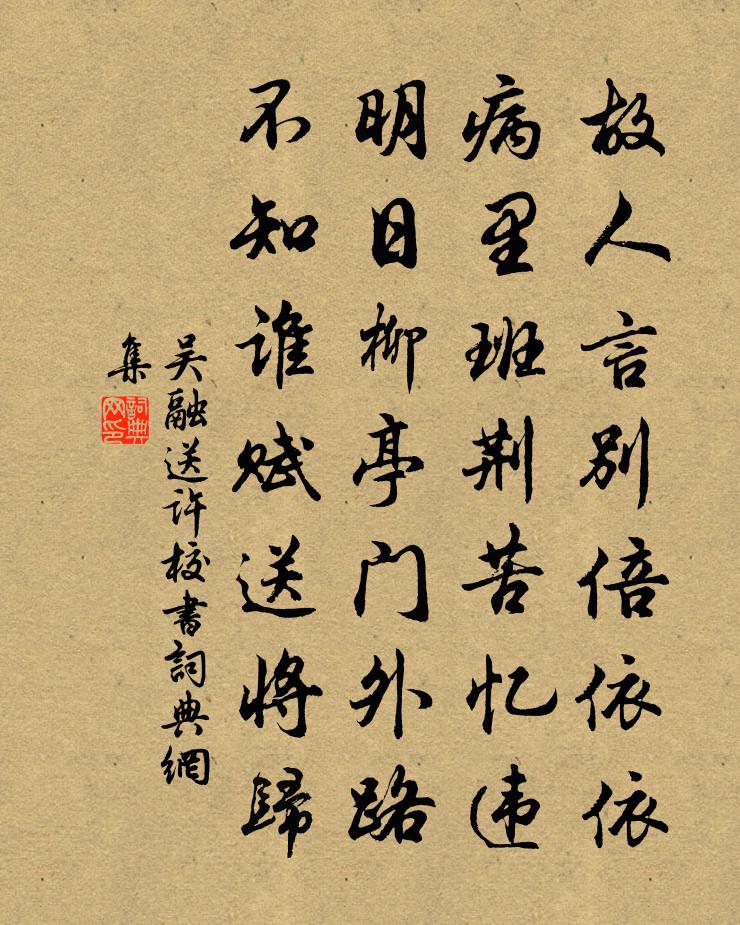 故人言别倍依依
病里班荆苦忆违
明日柳亭门外路
不知谁赋送将歸
吴融送许校書詞典網
集
詞典
网印